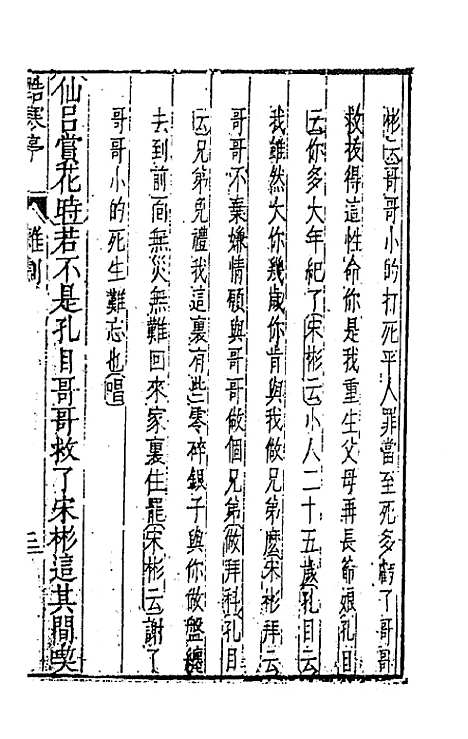 彬云哥哥小的打死平人罪當至死多虧了哥哥
救拔得這性命你是我重生父母再長爺娘孔目
云你多大年紀了宋彬云小人二十五歲孔目云
我雖然大你幾歲你肯與我做兄弟麽宋彬拜云
哥哥不棄嫌情願與哥哥做個兄弟做拜科孔目
云兄弟免禮我這裏有些零碎銀子與你做盤纏
去到前面無災無難回來家裏住罷宋彬云謝了
哥哥小的死生難忘也唱
仙吕賞花時若不是孔目哥哥救了宋彬這其間喫
酷寒亭 雜劇 三